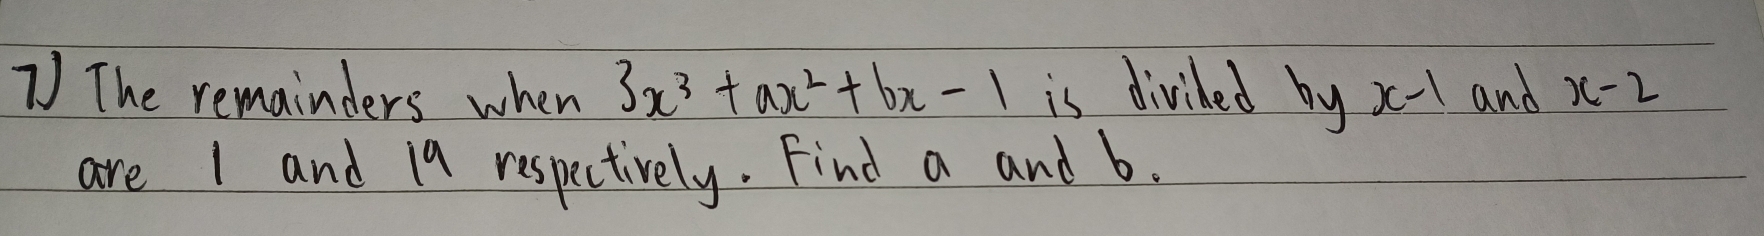 7) The remainders when 3x³ + ax² + bx - 1 is divided by x-1 and x-2
are 1 and 19 respectively. Find a and b.